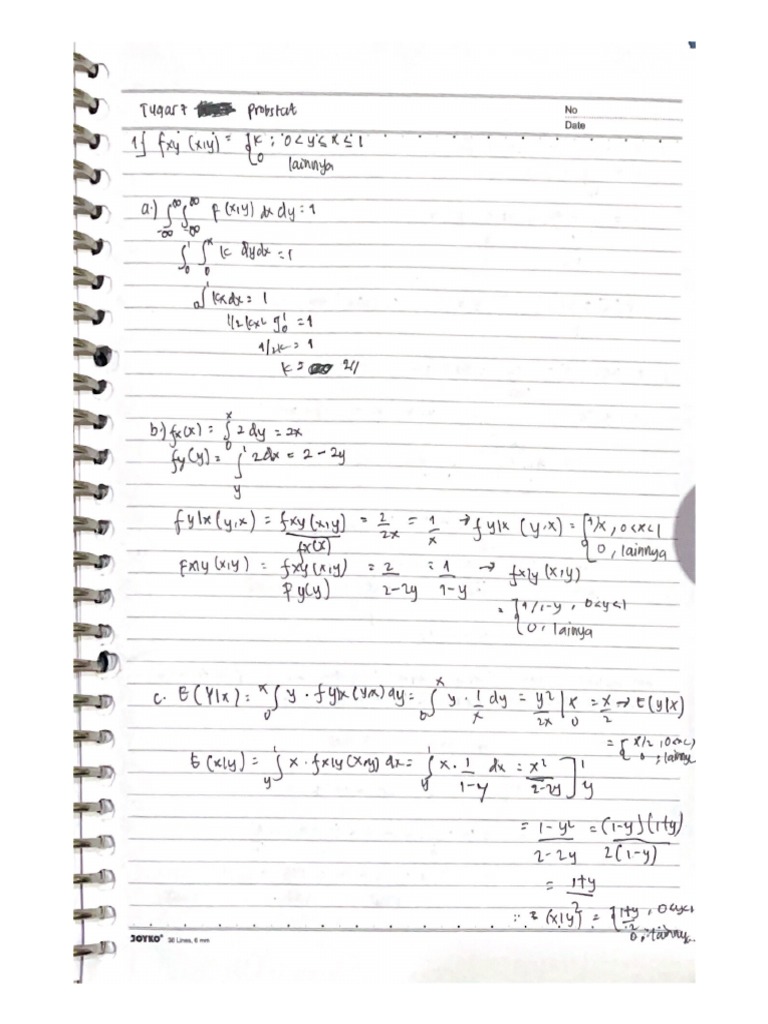 Tugas 7 Probstat
No
Date
1) fxy (x,y) = { k ; 0 < y ≤ x ≤ 1
0 lainnya
a.) ∫-∞^∞ ∫-∞^∞ f(x,y) dx dy = 1
∫0^1 ∫0^x k dydx = 1
0∫^1 kx dx = 1
1/2 kx² ]0^1 = 1
1/2k = 1
k = 2//
b.) fx(x) = ∫0^x 2 dy = 2x
fy(y) = ∫y^1 2dx = 2 - 2y
fy|x (y,x) = fxy (x,y) / fx(x) = 2/2x = 1/x → fy|x (y,x) = { 1/x, 0<x<1
0, lainnya
fx|y (x,y) = fxy (x,y) / fy(y) = 2/2-2y = 1/1-y → fx|y (x,y)
= { 1/1-y, 0<y<1
0, lainya
c. E(Y|x) = 0∫^x y . fy|x (y,x) dy = 0∫^x y . 1/x dy = y²/2x |0^x = x/2 → E(y|x)
= { x/2, 0<x<1
0, lainny
E(x|y) = y∫^1 x . fx|y (x,y) dx = y∫^1 x . 1/1-y dx = x²/2-2y ]y^1
= 1-y²/2-2y = (1-y)(1+y)/2(1-y)
= 1+y/2
∴ E(x|y) = { 1+y/2, 0<y<1
0, lainny.
JOYKO® 36 Lines, 6 mm